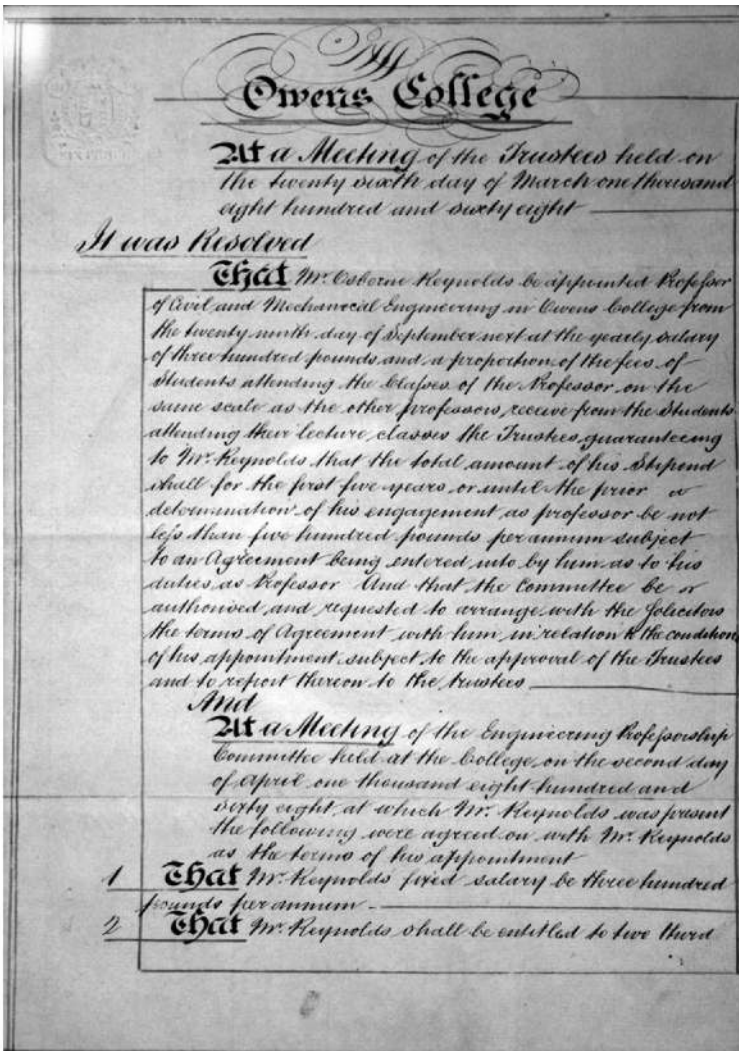 Owens College
At a Meeting of the Trustees held on
the twenty sixth day of March one thousand
eight hundred and sixty eight
It was Resolved
That Mr. Osborne Reynolds be appointed Professor
of Civil and Mechanical Engineering in Owens College from
the twenty ninth day of September next at the yearly salary
of three hundred pounds and a proportion of the fees of
Students attending the Classes of the Professor on the
same scale as the other professors, receive from the Students
attending their lecture, classes the Trustees guaranteeing
to Mr. Reynolds that the total amount of his Stipend
shall for the first five years or until the prior
determination of his engagement as professor be not
less than five hundred pounds per annum subject
to an Agreement being entered into by him as to his
duties as Professor And that the Committee be
authorised and requested to arrange with the Solicitors
the terms of Agreement with him in relation to the condition
of his appointment subject to the approval of the Trustees
and to report thereon to the trustees
And
At a Meeting of the Engineering Professorship
Committee held at the College on the second day
of April one thousand eight hundred and
sixty eight, at which Mr. Reynolds was present
the following were agreed on with Mr. Reynolds
as the terms of his appointment
1 That Mr. Reynolds fixed salary be three hundred
pounds per annum
2 That Mr. Reynolds shall be entitled to two third